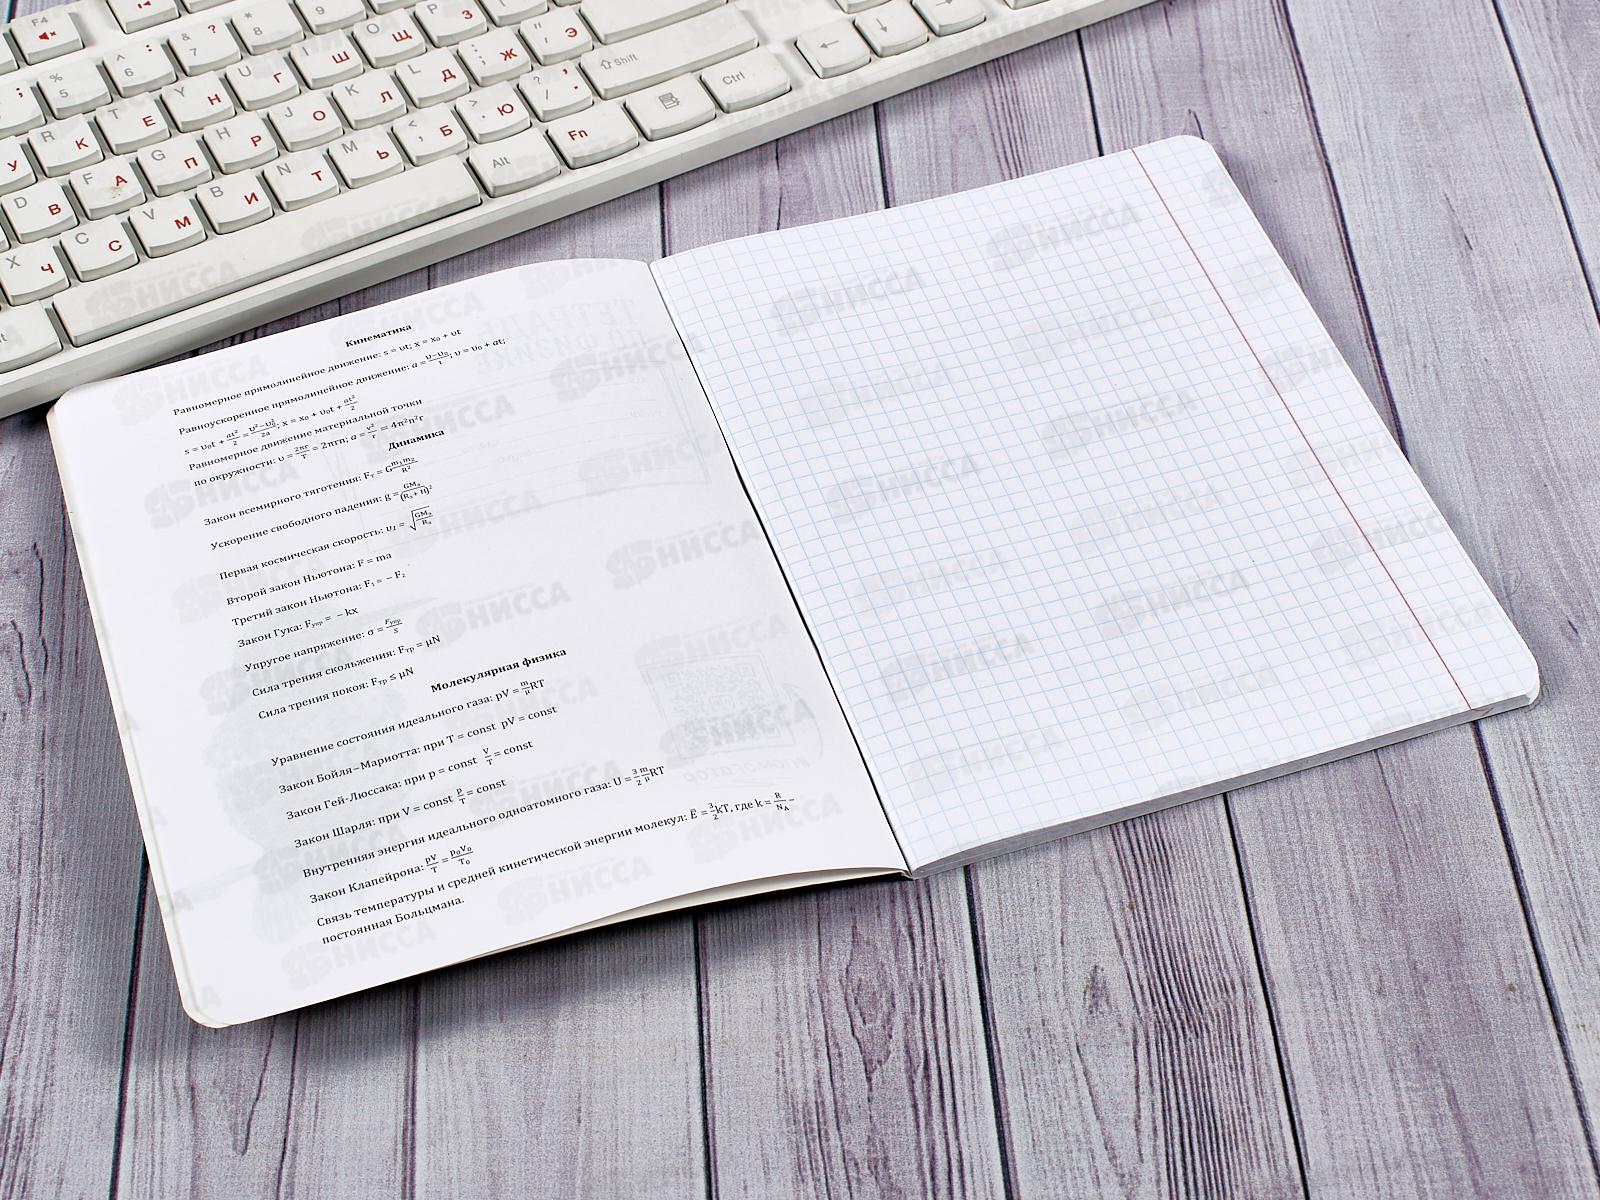 Кинематика
Равномерное прямолинейное движение: s = υt; x = x₀ + υt
Равноускоренное прямолинейное движение: a = (υ−υ₀)/t; υ = υ₀ + at;
s = υ₀t + at²/2 = (υ²−υ₀²)/2a; x = x₀ + υ₀t + at²/2
Равномерное движение материальной точки
по окружности: υ = 2πr/T = 2πrn; a = v²/r = 4π²n²r
Динамика
Закон всемирного тяготения: Fт = G m₁m₂/R²
Ускорение свободного падения: g = GMз/(Rз + H)²
Первая космическая скорость: υ₁ = √(GMз/Rз)
Второй закон Ньютона: F = ma
Третий закон Ньютона: F₁ = − F₂
Закон Гука: Fупр = − kx
Упругое напряжение: σ = Fупр/S
Сила трения скольжения: Fтр = μN
Сила трения покоя: Fтр ≤ μN
Молекулярная физика
Уравнение состояния идеального газа: pV = m/μ RT
Закон Бойля–Мариотта: при T = const pV = const
Закон Гей-Люссака: при p = const V/T = const
Закон Шарля: при V = const p/T = const
Внутренняя энергия идеального одноатомного газа: U = 3/2 m/μ RT
Закон Клапейрона: pV/T = p₀V₀/T₀
Связь температуры и средней кинетической энергии молекул: E̅ = 3/2 kT, где k = R/Nᴀ –
постоянная Больцмана.
F4
% 5
^ : 6
& ? 7
* 8
R К
T Е
Y Н
U Г
I Ш
O Щ
P З
D В
F А
G П
H Р
J О
K Л
L Д
; Ж
" Э
X Ч
C С
V М
B И
N Т
M Ь
< Б
> Ю
? /
Shift
Alt
Fn
Ctrl
НИССА